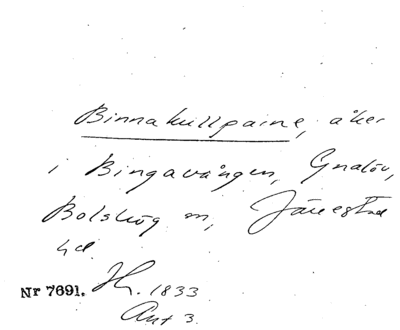 Binnakullpaine, åker
i Bingavången, Gnalöv,
Bolshög sn, Järrestad
hd.
Nr 7691. Hh. 1833
Akt 3.